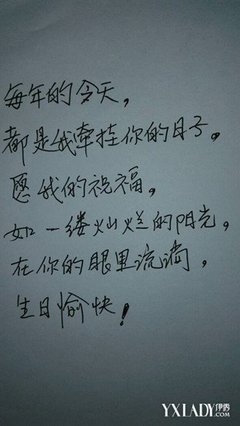 每年的今天，
都是我牵挂你的日子。
愿我的祝福，
如一缕灿烂的阳光，
在你的眼里流淌，
生日愉快！
YXLADY伊秀
.com